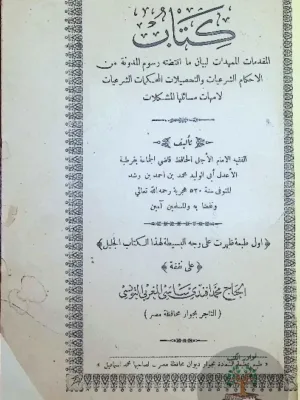 كتاب
المقدمات الممهدات لبيان ما اقتضته رسوم المدونة من
الاحكام الشرعيات والتحصيلات المحكمات الشرعيات
لامهات مسائلها المشكلات
تأليف
الفقيه الامام الأجل الحافظ قاضي الجماعة بقرطبة
الأعدل أبي الوليد محمد بن احمد بن رشد
المتوفى سنة ٥٢٠ هجرية رحمه الله تعالى
ونفعنا به والمسلمين آمين
﴿ اول طبعة ظهرت على وجه البسيطة لهذا الكتاب الجليل ﴾
﴿ على نفقة ﴾
الحاج محمد افندي ساسي المغربي التونسي
( التاجر بجوار محافظة مصر )
بجوار ديوان محافظة مصر ـ لصاحبها محمد اسماعيل